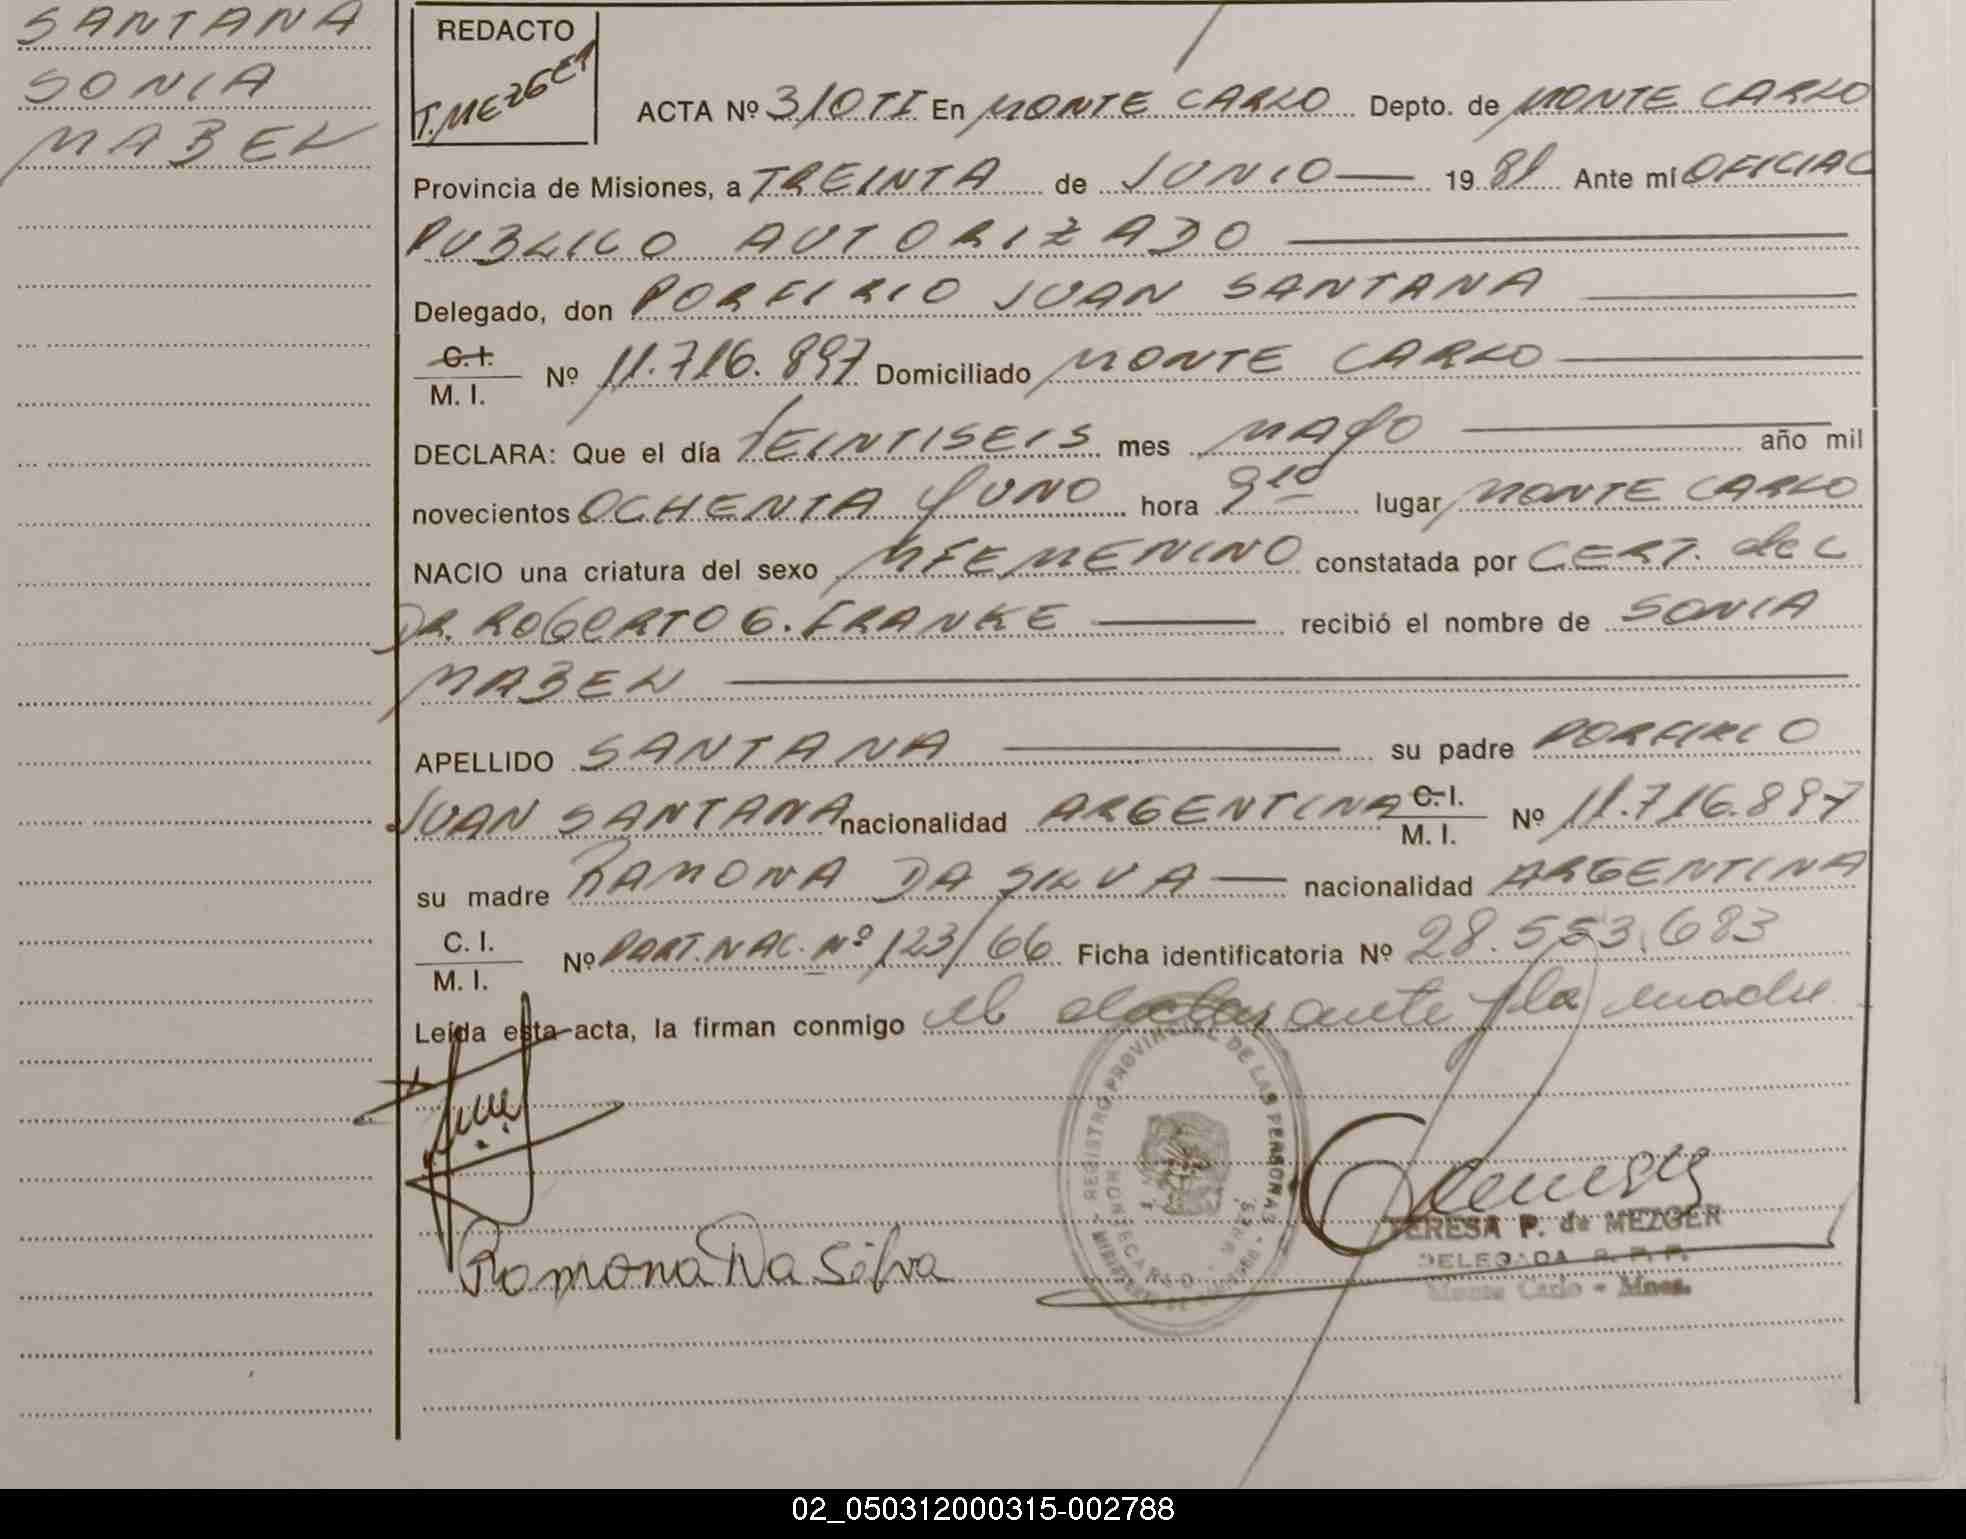 SANTANA
SONIA
MABEL
REDACTO
T. MEZGER
ACTA Nº 310TI En MONTE CARLO Depto. de MONTE CARLO
Provincia de Misiones, a TREINTA de JUNIO 1981 Ante mí OFICIAL
PUBLICO AUTORIZADO
Delegado, don PORFIRIO JUAN SANTANA
C. I.
M. I. Nº 11.716.897 Domiciliado MONTE CARLO
DECLARA: Que el día VEINTISEIS mes MAYO año mil
novecientos OCHENTA Y UNO hora 9 10 lugar MONTE CARLO
NACIO una criatura del sexo FEMENINO constatada por CERT. del
DR. ROBERTO G. FRANKE recibió el nombre de SONIA
MABEL
APELLIDO SANTANA su padre PORFIRIO
JUAN SANTANA nacionalidad ARGENTINA C. I. M. I. Nº 11.716.897
su madre RAMONA DA SILVA nacionalidad ARGENTINA
C. I.
M. I. Nº PART. NAC. Nº 123/66 Ficha identificatoria Nº 28.553.683
Leída esta acta, la firman conmigo el declarante y la madre
REGISTRO PROVINCIAL DE LAS PERSONAS
MONTECARLO - MNES.
Ramona Da Silva
TERESA P. de MEZGER
DELEGADA R. P. P.
Monte Carlo - Mnes.
02_050312000315-002788